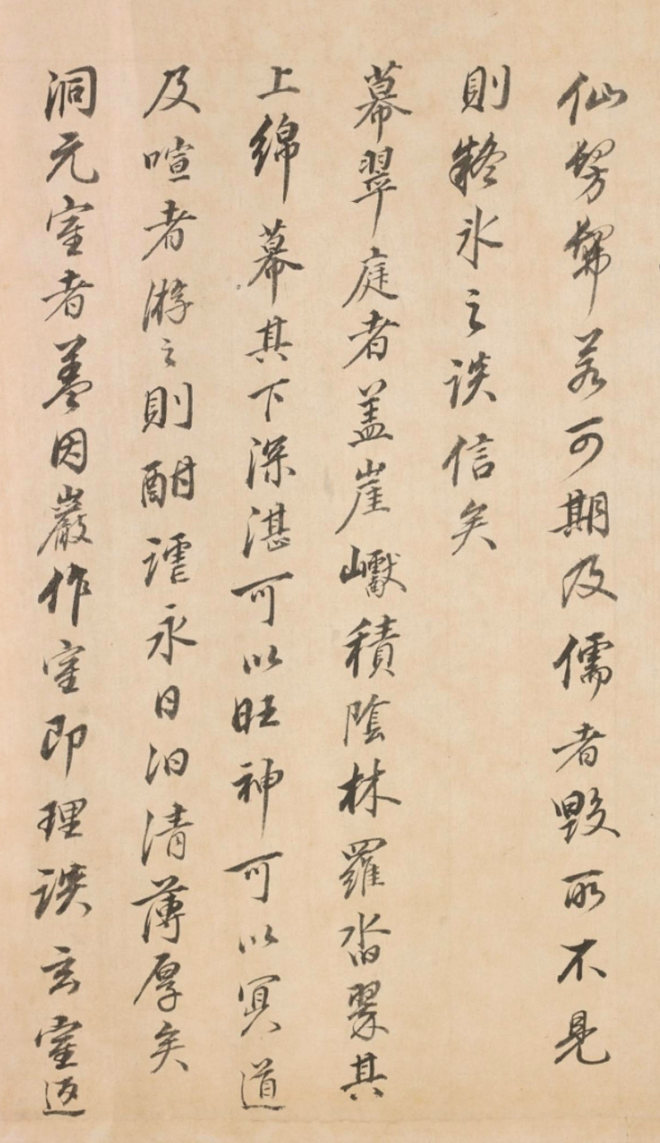 仙髣髴若可期及儒者毀所不見
則黐氷之談信矣
幕翠庭者盖崖巘積陰林羅沓翠其
上綿幕其下深湛可以旺神可以冥道
及喧者游之則酣謔永日汩清薄厚矣
洞元室者盖因巖作室即理談玄室返